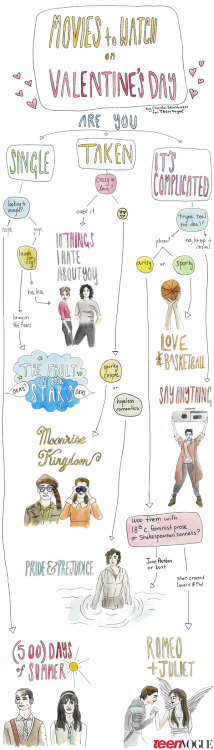 MOVIES to WATCH
on
VALENTINE'S DAY
for Teen Vogue
ARE YOU
SINGLE
TAKEN
IT'S
COMPLICATED
crazy in
love?
looking to
mingle?
over it.
nope
yup.
laugh
or
cry?
10 THINGS
I HATE
ABOUT YOU
ha, ha.
bring on
the tears
phase?
no, keep it
casual.
artsy
or
sporty
LOVE
& BASKETBALL
THE FAULT
IN OUR
STARS
quirky
couple
or
hopeless
romantics
SAY ANYTHING
Moonrise
Kingdom
woo them with
18th c. feminist prose
or Shakespearean sonnets?
Jane Austen
or bust
star-crossed
lovers FTW!
PRIDE & PREJUDICE
(500) DAYS
of SUMMER
ROMEO
+ JULIET
teenVOGUE